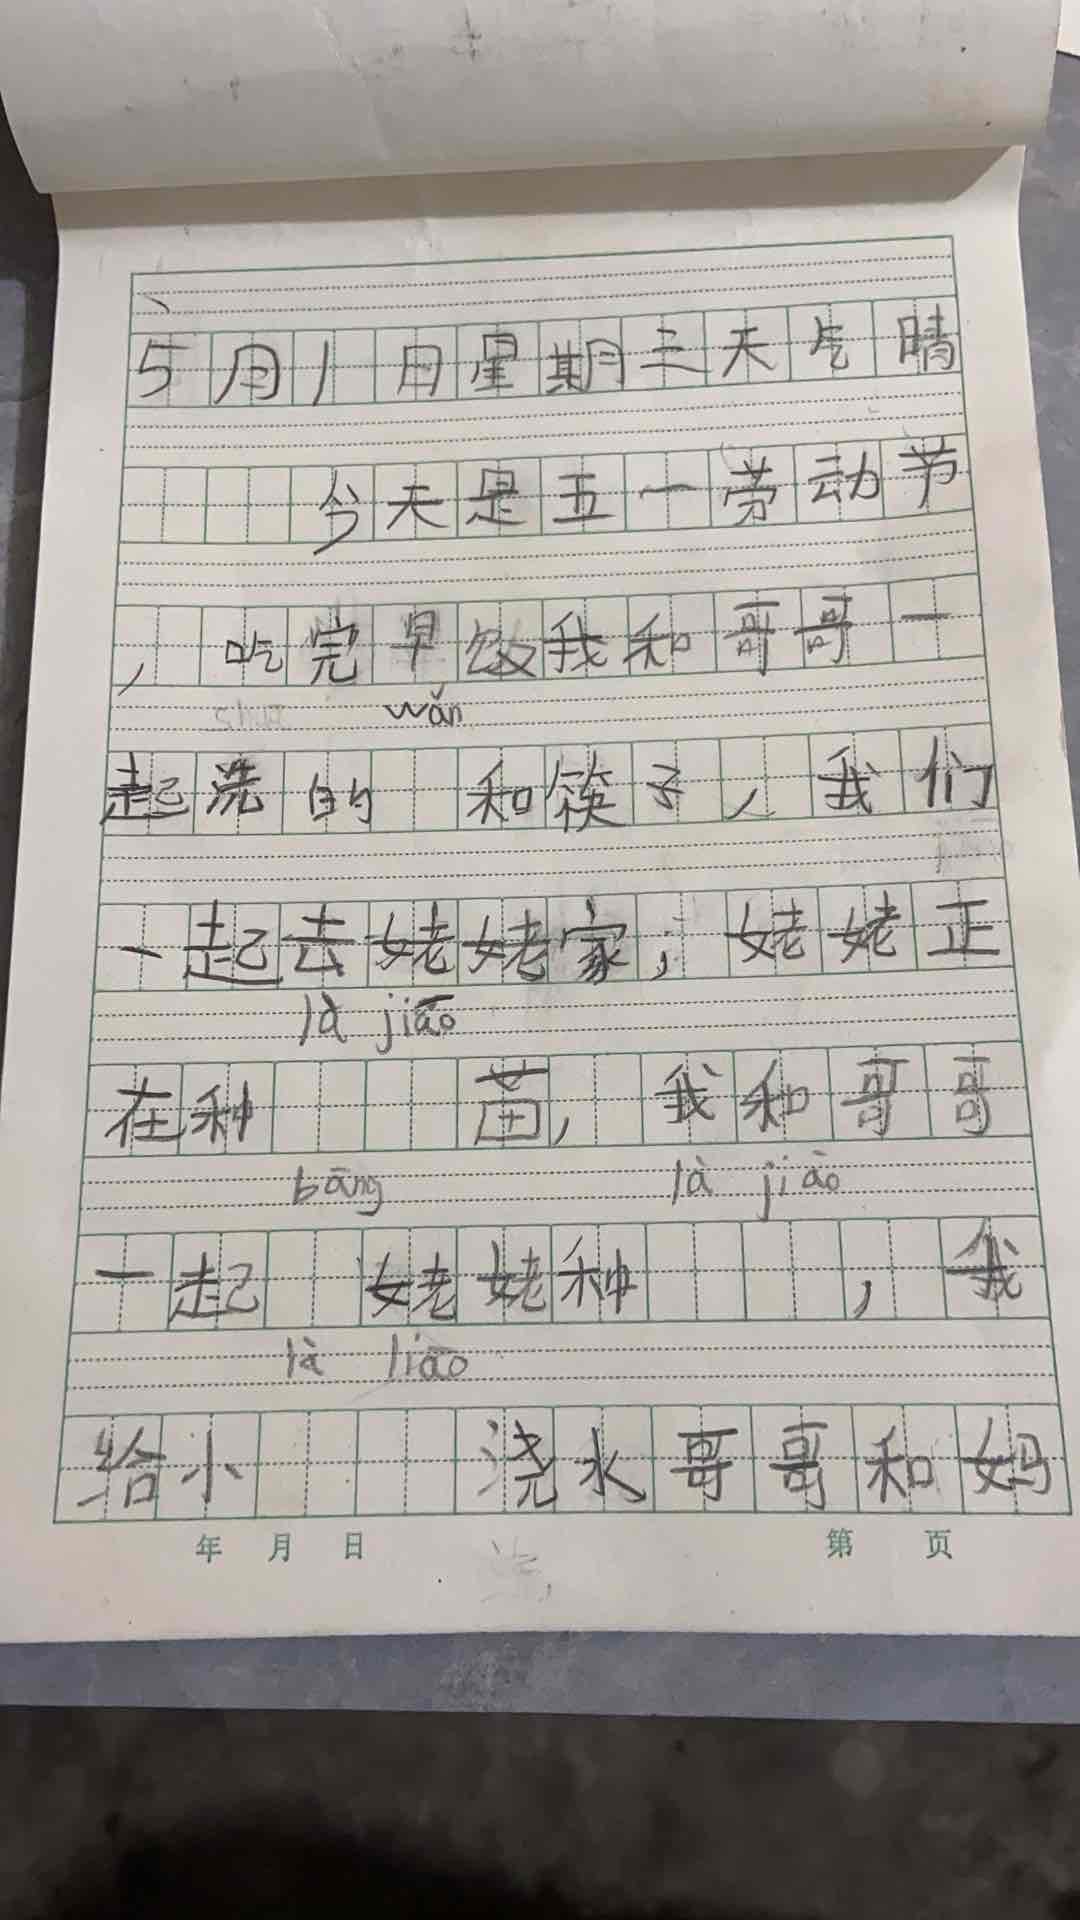 5月1日星期三天气晴
今天是五一劳动节
，吃完早饭我和哥哥一
wǎn
起洗的 和筷子，我们
一起去姥姥家，姥姥正
là jiāo
在种 苗，我和哥哥
bāng là jiào
一起 姥姥种 ，我
là liāo
给小 浇水哥哥和妈
年 月 日 第 页